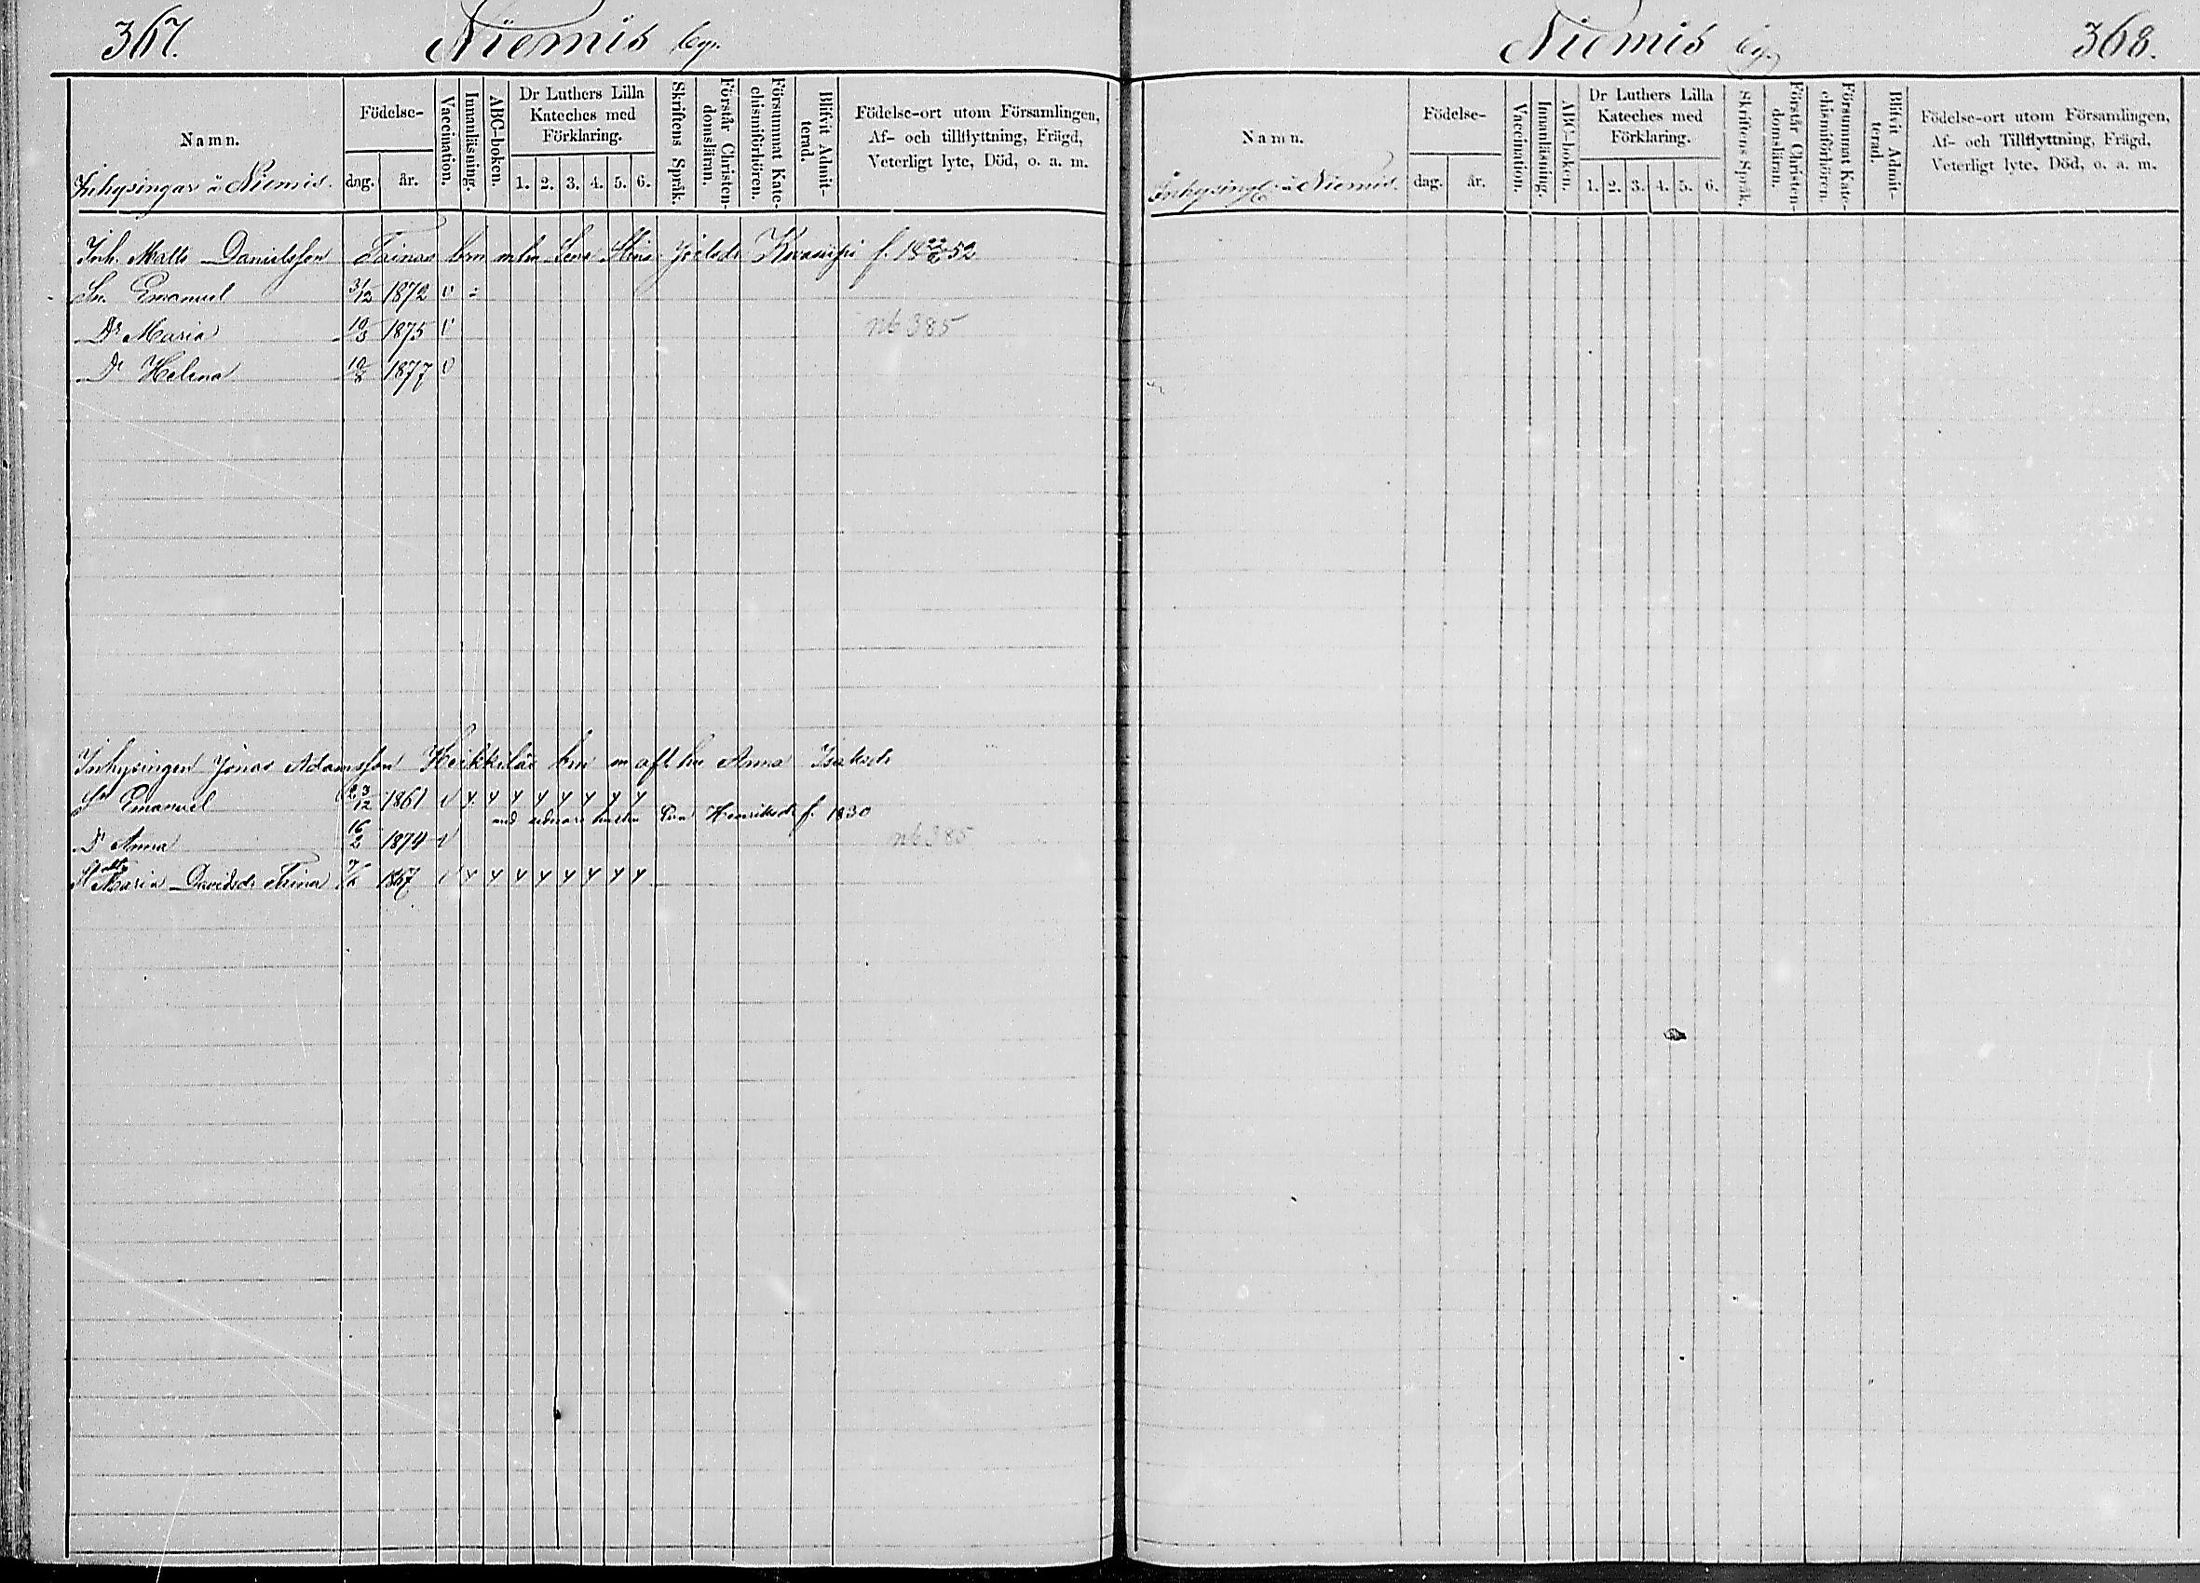 367. Niemis by.
Namn.
Inhysingar å Niemis.
Födelse-
dag. år.
Vaccination.
Innanläsning.
ABC-boken.
Dr Luthers Lilla Kateches med Förklaring.
1. 2. 3. 4. 5. 6.
Skriftens Språk.
Förstår Christen-domsläran.
Försummat Kate-chismiförhören.
Blifvit Admit-terad.
Födelse-ort utom Församlingen,
Af- och tillflyttning, Frägd,
Veterligt lyte, Död, o. a. m.
Inh. Matts Danielsson Tainas brn m hu Lena Stina f. 18 22/6 52
Sn. Emanuel 31/12 1872 v
Dr Maria 10/3 1875 v
nb 385
Dr Helena 10/8 1877 v
Inhysingen Jonas Adamsson Heikkiläs brn m afl hu Anna Isaksdr
Sn Emanuel 23/12 1861 v y y y y y y y y
med senare hustru Eva Henriksdr f. 1830
Dr Anna 16/2 1874 v
nb 385
Maria Davidsdr 1867 v y y y y y y y y
Niemis by. 368.
Namn.
Inhysing: å Niemis.
Födelse-
dag. år.
Vaccination.
Innanläsning.
ABC-boken.
Dr Luthers Lilla Kateches med Förklaring.
1. 2. 3. 4. 5. 6.
Skriftens Språk.
Förstår Christen-domsläran.
Försummat Kate-chismiförhören.
Blifvit Admit-terad.
Födelse-ort utom Församlingen,
Af- och Tillflyttning, Frägd,
Veterligt lyte, Död, o. a. m.